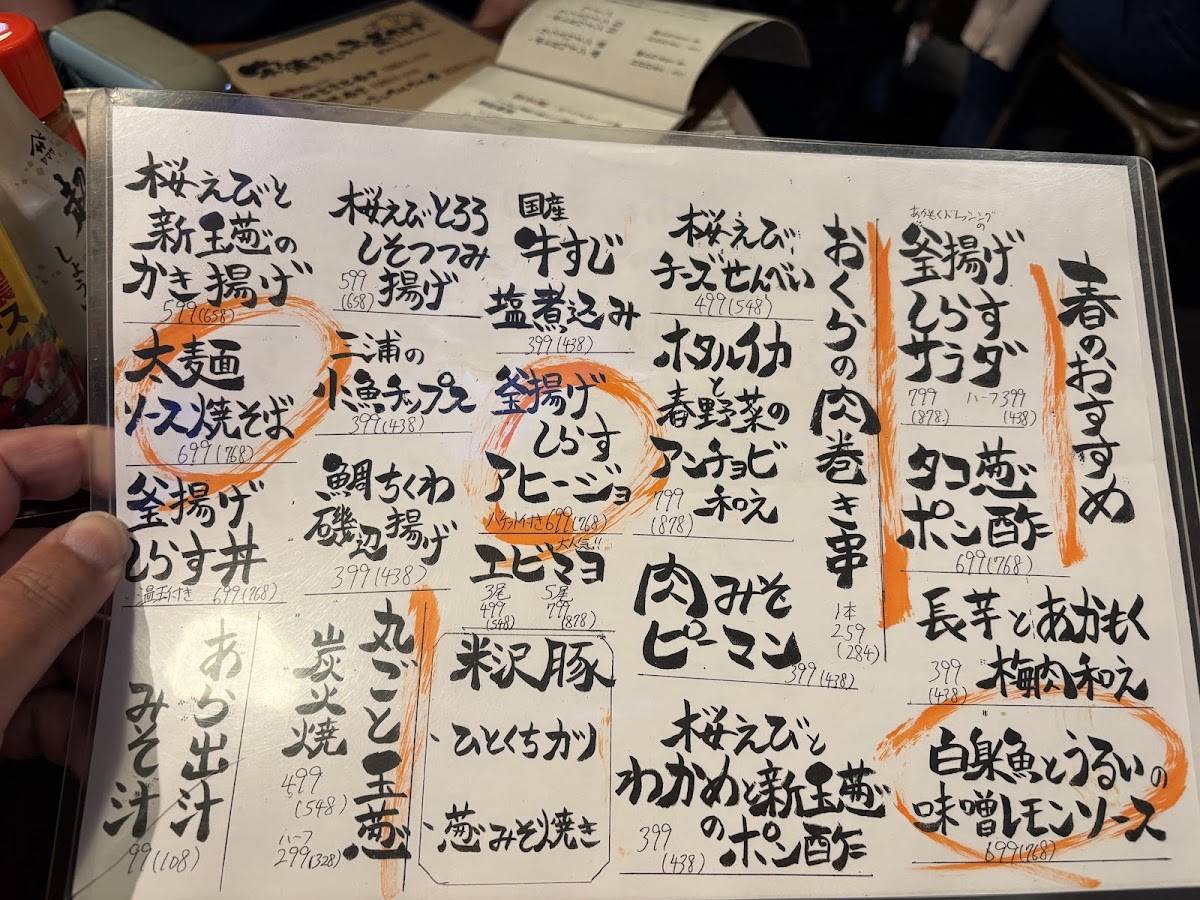 春のおすすめ
あかもくドレッシングの
釜揚げ
しらす
サラダ
799
(878)
ハーフ399
(438)
タコ葱
ポン酢
699(768)
長芋とあかもく
梅肉和え
399
(438)
白身魚とうるいの
味噌レモンソース
699(768)
おくらの肉巻き串
1本
259
(284)
桜えび
チーズせんべい
499(548)
ホタルイカ
と
春野菜の
アンチョビ
和え
799
(878)
肉みそ
ピーマン
399(438)
桜えびと
わかめと新玉葱
のポン酢
399
(438)
国産
牛すじ
塩煮込み
399(438)
釜揚げ
しらす
アヒージョ
バケット付き699(768)
大人気!!
エビマヨ
3尾
499
(548)
5尾
799
(878)
米沢豚
・ひとくちカツ
・葱みそ焼き
桜えびとろろ
しそつつみ
揚げ
599
(658)
三浦の
小魚チップス
399(438)
鯛ちくわ
磯辺揚げ
399(438)
丸ごと玉葱
炭火焼
499
(548)
ハーフ
299(328)
桜えびと
新玉葱の
かき揚げ
599(658)
太麺
ソース焼そば
699(768)
釜揚げ
しらす丼
温玉付き 699(768)
あら出汁
みそ汁
99(108)